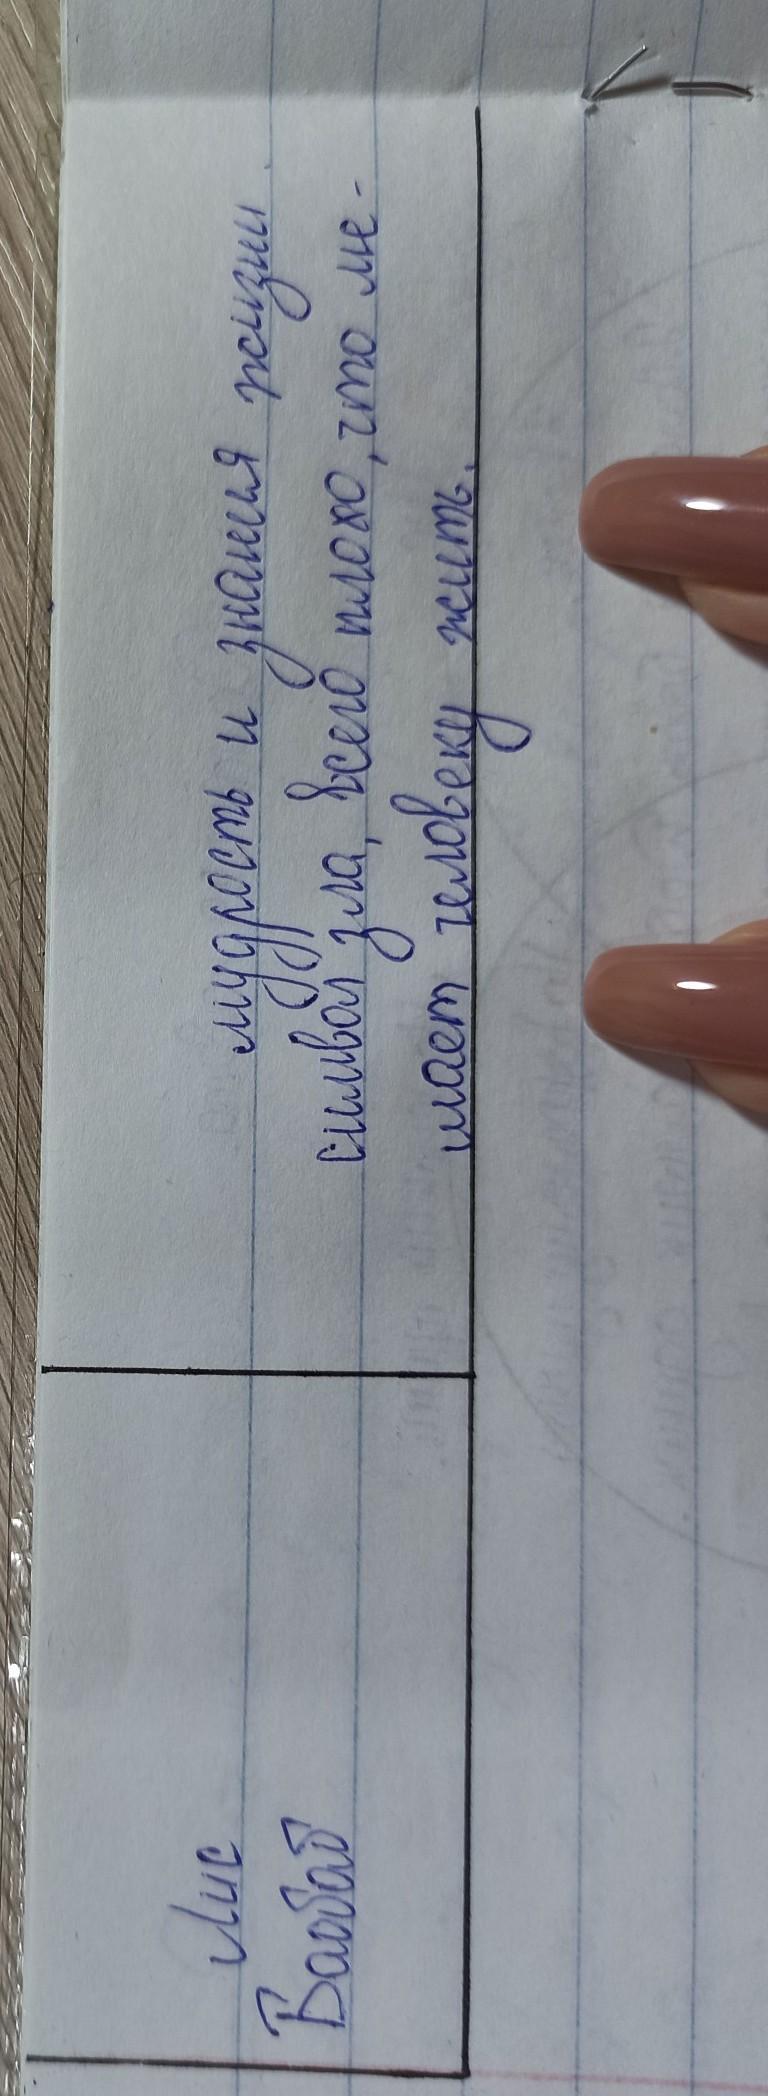 Лис мудрость и знания жизни.
Баобаб символ зла, всего плохо, что ме-
шает человеку жить.